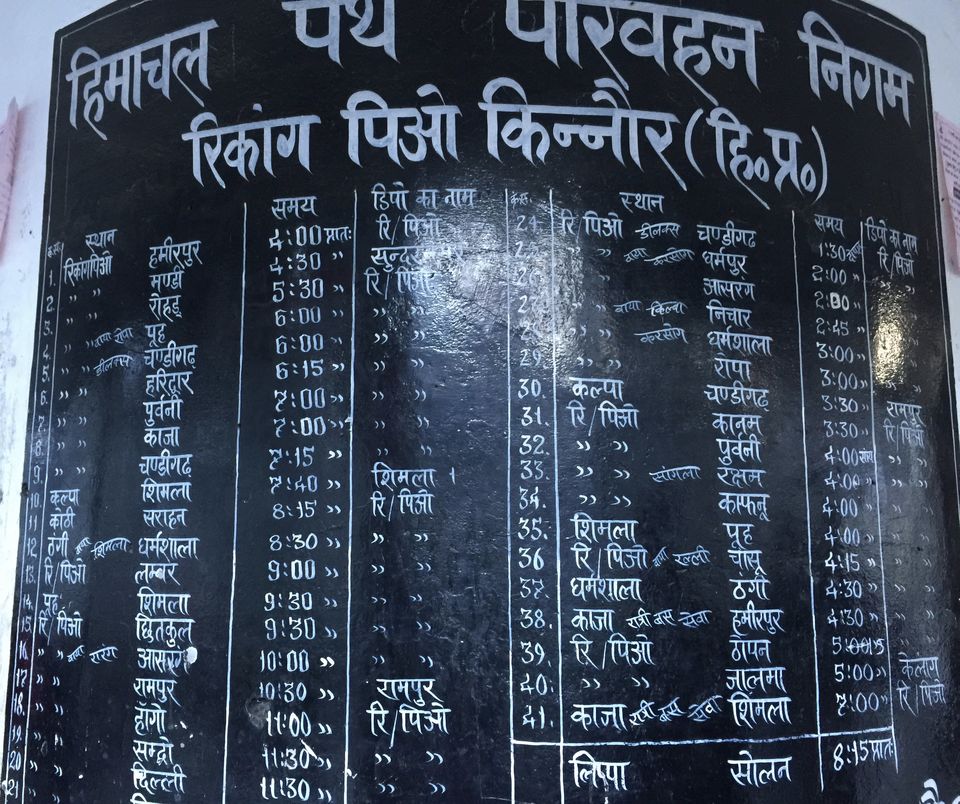 हिमाचल पथ परिवहन निगम
रिकांग पिओ किन्नौर (हि॰प्र॰)
स्थान समय डिपो का नाम
1. रिकांगपिओ हमीरपुर 4:00 प्रातः रि/पिओ
2. ,, ,, मण्डी 4:30 ,,
3. ,, ,, रोहडू 5:30 ,, रि/पिओ
4. ,, ,, पूह 6:00 ,, ,, ,,
5. ,, ,, डीलक्स चण्डीगढ 6:00 ,, ,, ,,
6. ,, ,, हरिद्वार 6:15 ,, ,, ,,
,, ,, पुर्वनी 7:00 ,, ,, ,,
8. ,, ,, काजा 7:00 ,, ,, ,,
9. ,, ,, चण्डीगढ 7:15 ,, ,, ,,
10. कल्पा शिमला 7:40 ,, शिमला
11 कोठी सराहन 8:15 ,, रि/पिओ
12 ठंगी वाया शिमला धर्मशाला 8:30 ,, ,, ,,
13. रि/पिओ लम्बर 9:00 ,, ,, ,,
14. पूह शिमला 9:30 ,, ,, ,,
15 रि/पिओ छितकुल 9:30 ,, ,, ,,
16. ,, ,, वाया आसरंग 10:00 ,, ,, ,,
17 ,, ,, रामपुर 10:30 ,, रामपुर
18. ,, ,, हांगो 11:00 ,, रि/पिओ
19 ,, ,, सम्दो 11:30 ,, ,, ,,
20 ,, ,, दिल्ली 11:30 ,, ,, ,,
21 ,, ,,
स्थान समय डिपो का नाम
रि/पिओ डीलक्स चण्डीगढ 1:30 रि/पिओ
,, ,, वाया करसोग धर्मपुर 2:00 ,, ,, ,,
,, ,, आसरंग 2:00 ,, ,, ,,
,, ,, वाया किल्बा निचार 2:45 ,, ,, ,,
,, ,, करसोग धर्मशाला 3:00 ,, ,, ,,
29. ,, ,, रोपा 3:00 ,, ,, ,,
30. कल्पा चण्डीगढ 3:30 ,, रामपुर
31. रि/पिओ कानम 3:30 ,, रि/पिओ
32. ,, ,, पुर्वनी 4:00 ,, ,,
33. ,, ,, सांगला रक्षम 4:00 ,, ,, ,,
34. ,, ,, काफनू 4:00 ,, ,, ,,
35. शिमला पूह 4:00 ,, ,, ,,
36 रि/पिओ वाया चांसू 4:15 ,, ,, ,,
37. धर्मशाला ठंगी 4:30 ,, ,, ,,
38. काजा रात्री बस सेवा हमीरपुर 4:30 ,, ,, ,,
39. रि/पिओ ठोपन 5:00 ,,
40. ,, ,, जालमा 5:00 ,, केलांग
41. काजा रात्री बस सेवा शिमला 7:00 ,, रि/पिओ
लिप्पा सोलन 8:15 प्रातः